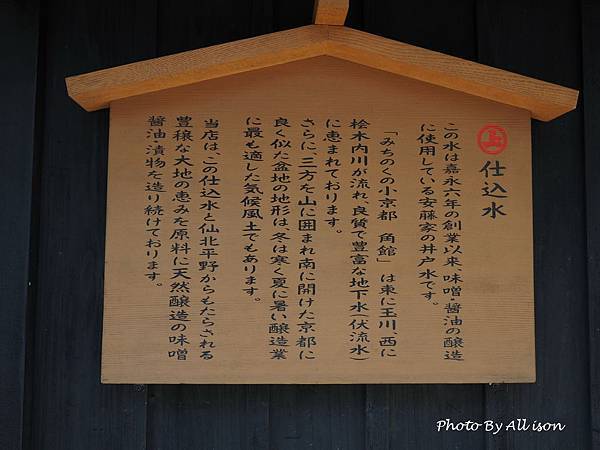 上
仕込水
この水は嘉永六年の創業以来、味噌・醤油の醸造
に使用している安藤家の井戸水です。
「みちのくの小京都　角館」は東に玉川、西に
桧木内川が流れ、良質で豊富な地下水(伏流水)
に恵まれております。
さらに、三方を山に囲まれ南に開けた京都に
良く似た盆地の地形は、冬は寒く夏に暑い醸造業
に最も適した気候風土でもあります。
当店は、この仕込水と仙北平野からもたらされる
豊穣な大地の恵みを原料に天然醸造の味噌
醤油・漬物を造り続けております。
Photo By All ison